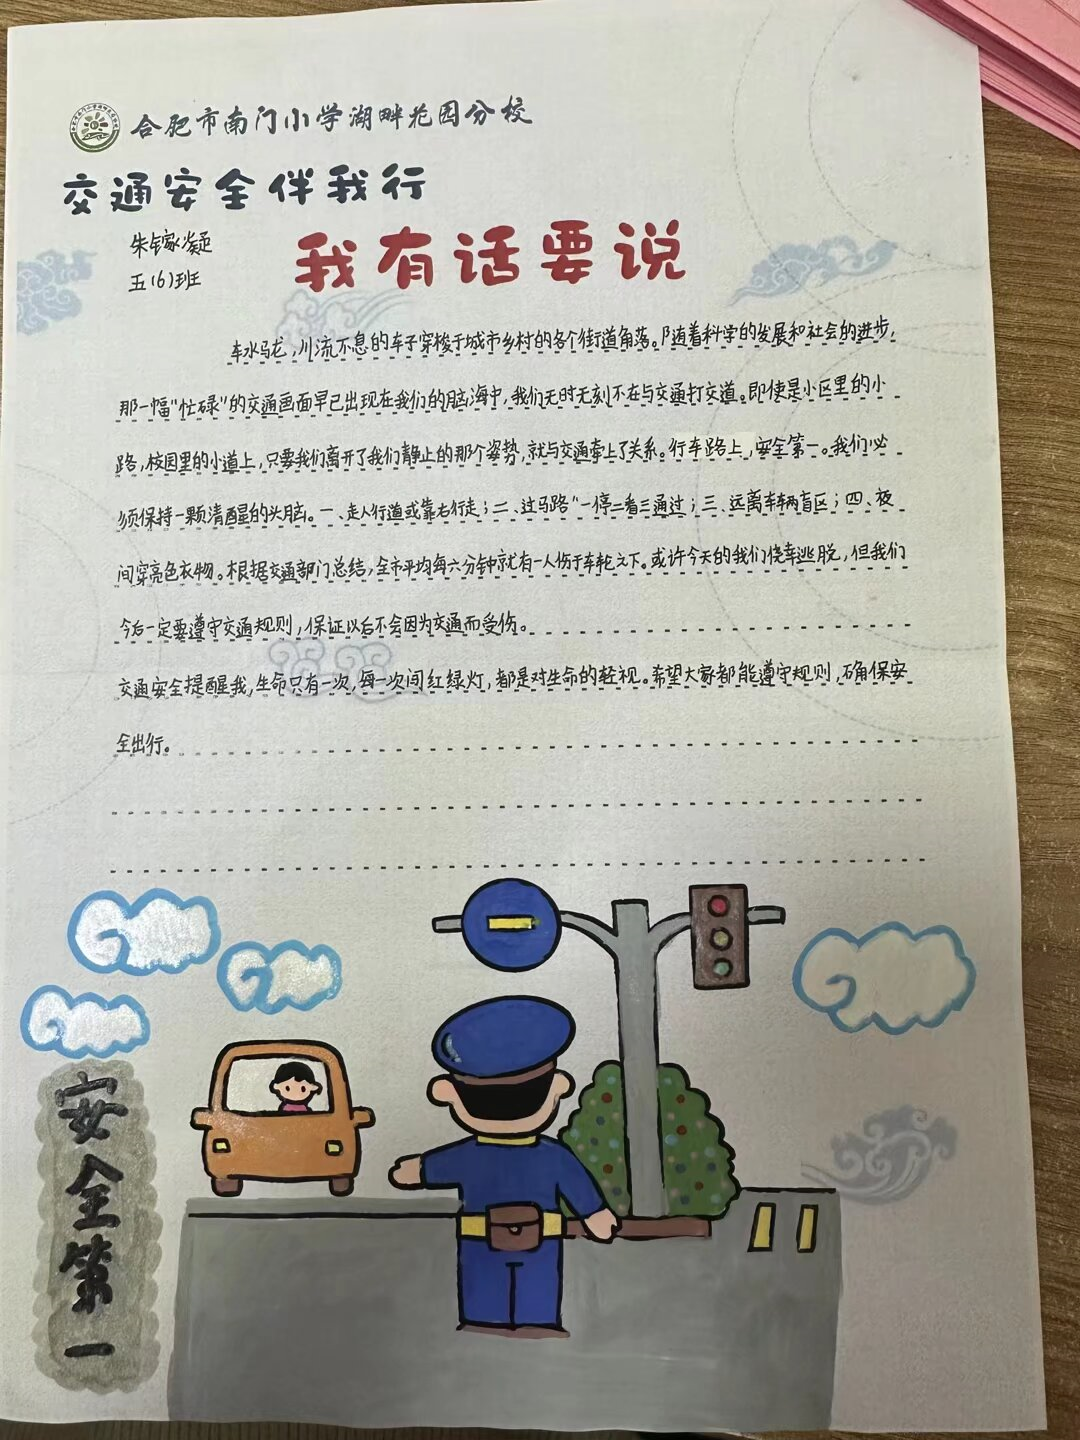 合肥市南门小学湖畔花园分校
交通安全伴我行
我有话要说
朱铱凝
五(6)班
车水马龙,川流不息的车子穿梭于城市乡村的各个街道角落。随着科学的发展和社会的进步,
那一幅"忙碌"的交通画面早已出现在我们的脑海中,我们无时无刻不在与交通打交道。即使是小区里的小
路,校园里的小道上,只要我们离开了我们静止的那个姿势,就与交通牵上了关系。行车路上,安全第一。我们必
须保持一颗清醒的头脑。一、走人行道或靠右行走;二、过马路"一停二看三通过;三、远离车辆盲区;四、夜
间穿亮色衣物。根据交通部门总结,全市平均每六分钟就有一人伤于车轮之下。或许今天的我们侥幸逃脱,但我们
今后一定要遵守交通规则,保证以后不会因为交通而受伤。
交通安全提醒我,生命只有一次,每一次闯红绿灯,都是对生命的轻视。希望大家都能遵守规则,确保安
全出行。
安全第一